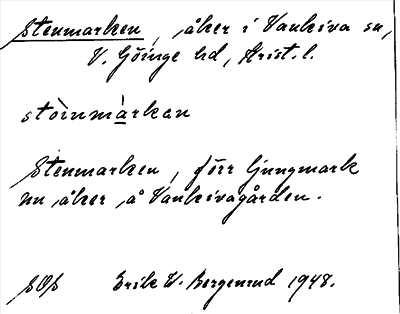 Stenmarken, åker i Vankiva sn,
V. Göinge hd, Krist. l.
stòinmàrkan
Stenmarken, förr ljungmark
nu åker å Vankivagården.
Erik W. Bergenrud 1948.